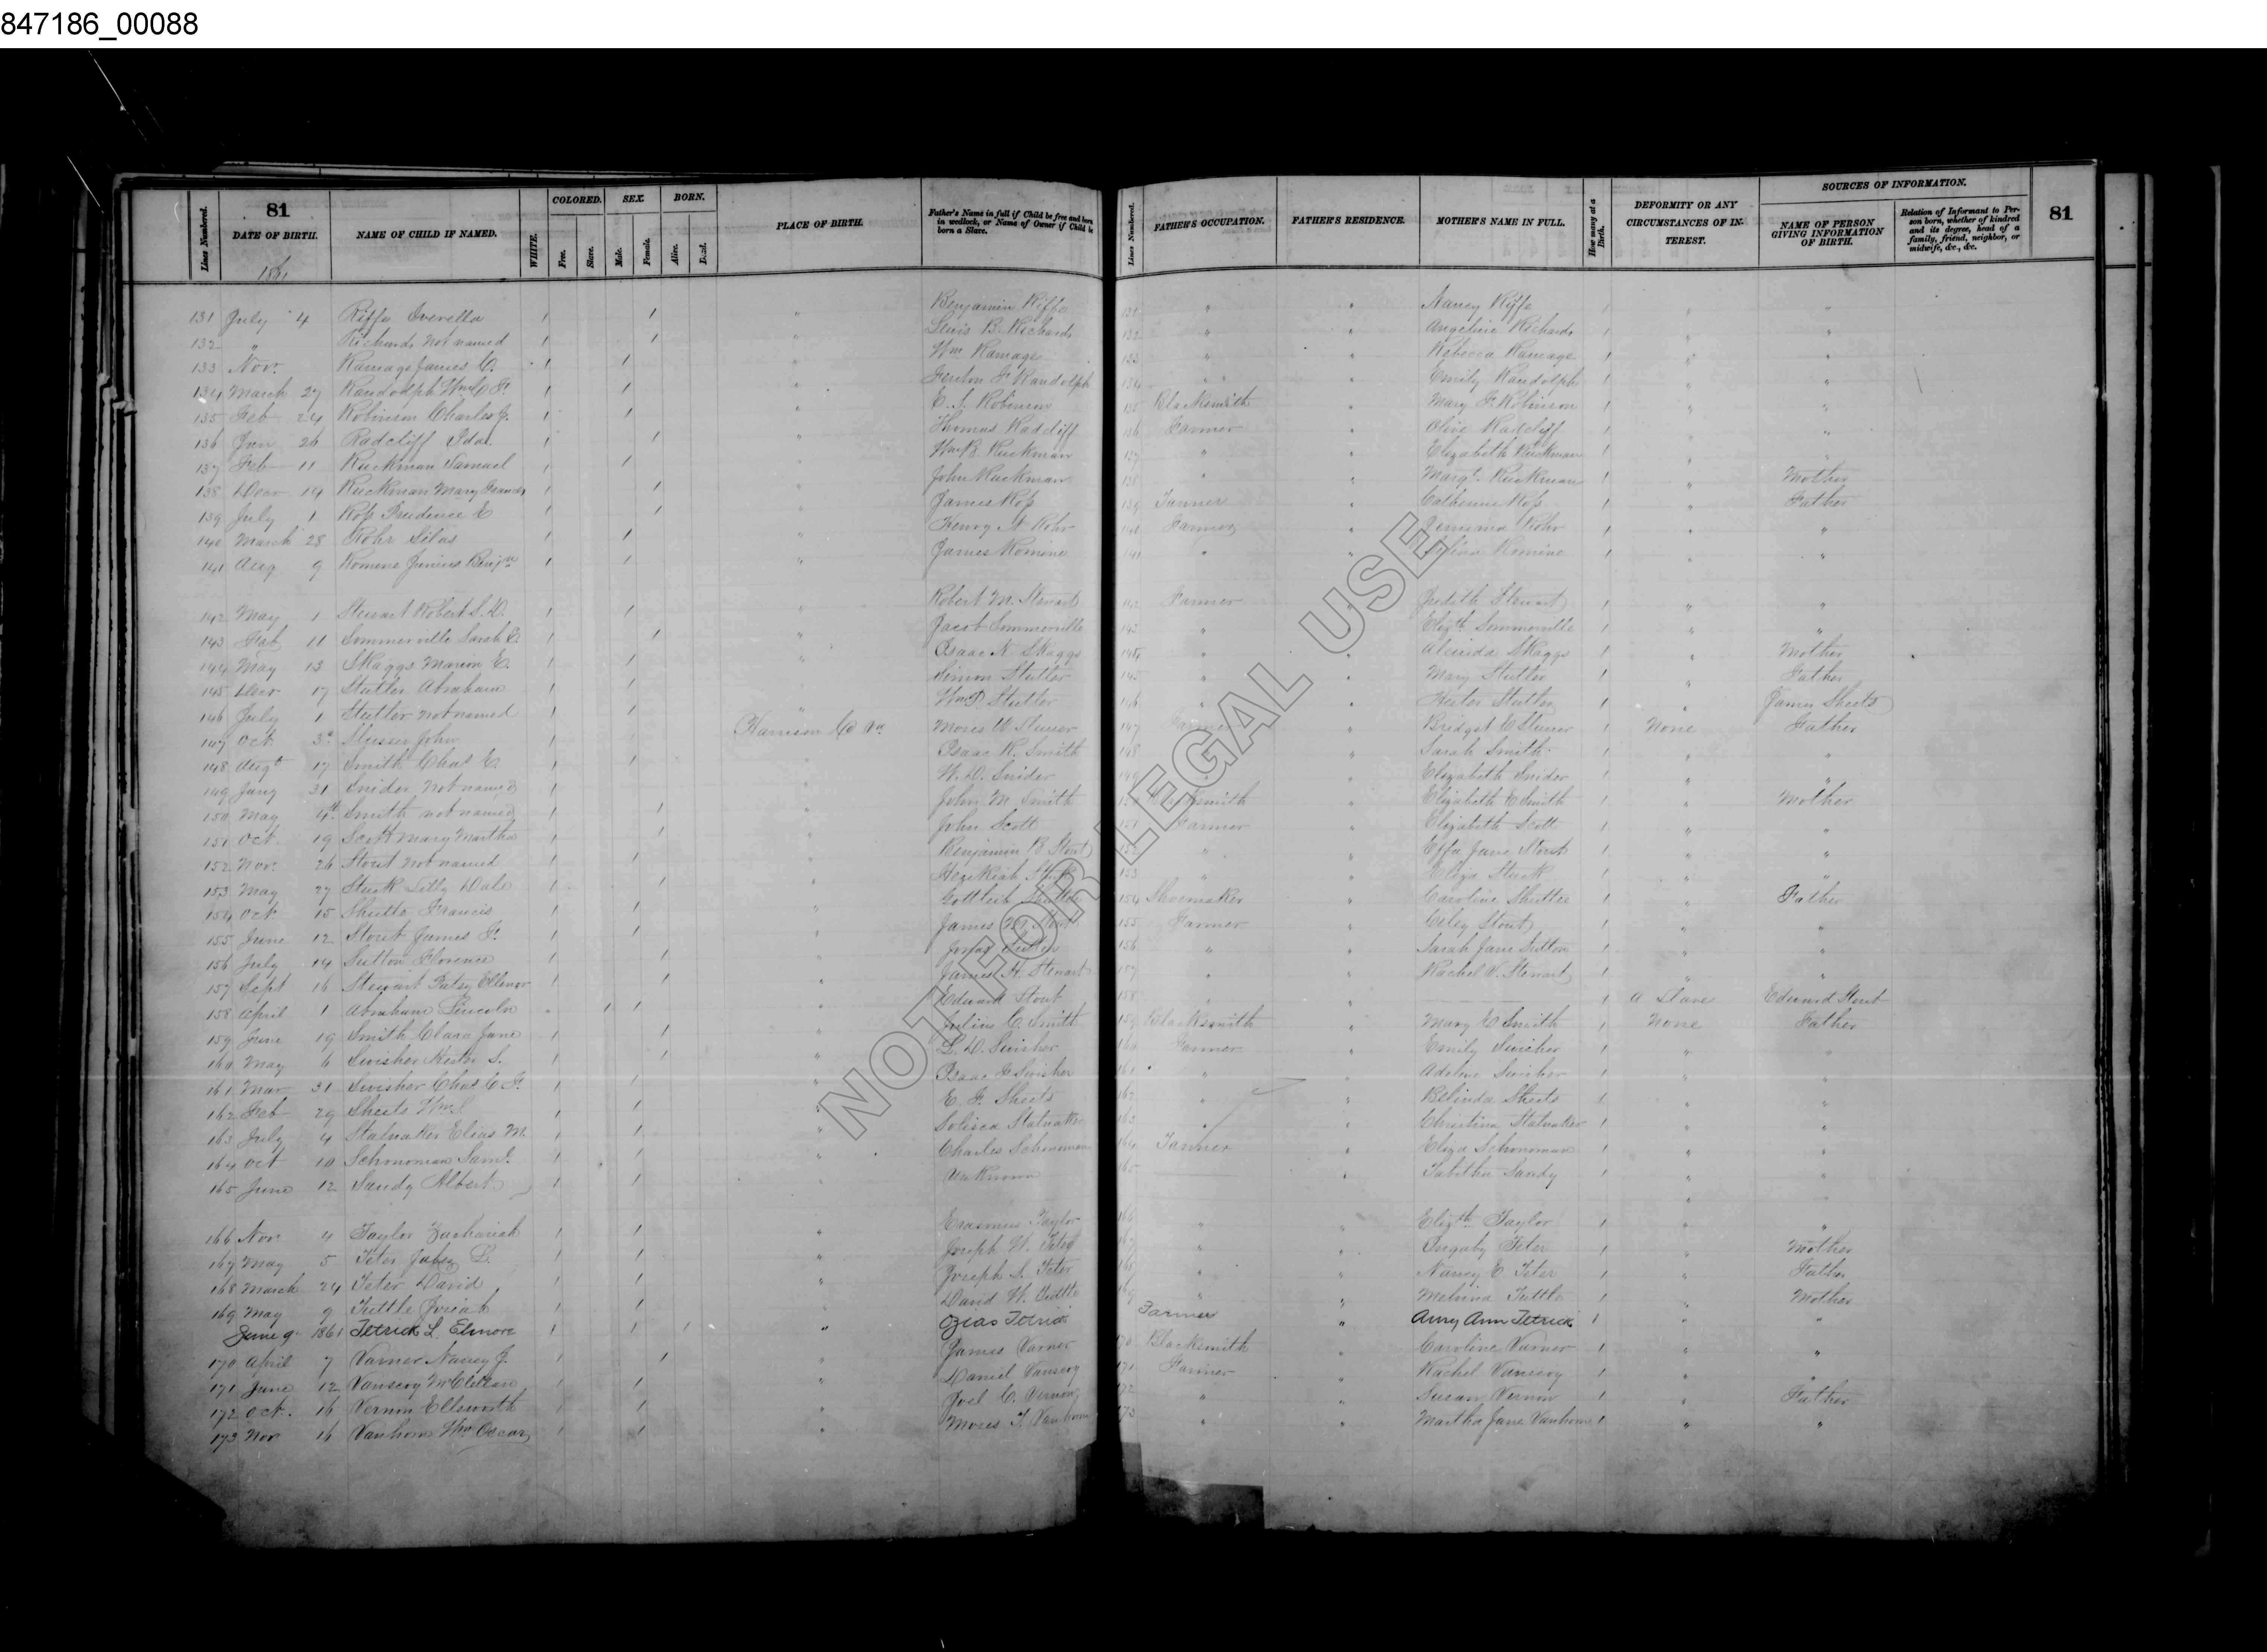 847186_00088
81
Lines Numbered. DATE OF BIRTH. NAME OF CHILD IF NAMED. WHITE. COLORED. Free. Slave. SEX. Male. Female. BORN. Alive. Dead. PLACE OF BIRTH. Father's Name in full if Child be free and born in wedlock, or Name of Owner if Child be born a Slave.
Lines Numbered. FATHER'S OCCUPATION. FATHER'S RESIDENCE. MOTHER'S NAME IN FULL. How many at a Birth. DEFORMITY OR ANY CIRCUMSTANCES OF INTEREST. SOURCES OF INFORMATION. NAME OF PERSON GIVING INFORMATION OF BIRTH. Relation of Informant to Person born, whether of kindred and its degree, head of a family, friend, neighbor, or midwife, &c., &c. 81
1861
131 July 4 Riffe Everetta 1 1 " Benjamin Riffe 131 " " Nancy Riffe 1 " "
132 " Richards not named 1 1 " Lewis B. Richards 132 " " Angeline Richards 1 " "
133 Novr. Ramage James C. 1 1 " Wm Ramage 133 " " Rebecca Ramage 1 " "
134 March 27 Randolph Wm C F. 1 1 " Fenton F Randolph 134 " " Emily Randolph 1 " "
135 Feb 24 Robinson Charles J. 1 1 " Robinson 135 Blacksmith " Mary F. Robinson 1 " "
136 Jan 26 Radcliff Ida 1 1 " Thomas Radcliff 136 Farmer " Olive Radcliff 1 " "
137 Feb 11 Ruckman Samuel 1 1 " Wm B. Ruckman 137 " " Elizabeth Ruckman 1 " "
138 Decr 14 Ruckman Mary Frances 1 1 " John Ruckman 138 " " Margt. Ruckman 1 " Mother
139 July 1 Roß Prudence E 1 1 " James Roß 139 Farmer " Catherine Roß 1 " Father
140 March 28 Rohr Silas 1 1 " Henry Rohr 140 Farmer " Jemima Rohr 1 " "
141 Aug 9 Romine Junius Benjn 1 1 " James Romine 141 " " Romine 1 " "
142 May 1 Stewart Robert S. D. 1 1 " Robert M. Stewart 142 Farmer " Judith Stewart 1 " "
143 Feb 11 Sommerville Sarah 1 1 " Jacob Sommerville 143 " " Elizth Sommerville 1 " "
144 May 13 Skaggs Marion E. 1 1 " Isaac N Skaggs 144 " " Alcinda Skaggs 1 " Mother
145 Decr 17 Stutler Abraham 1 1 Simon Stutler 145 " " Mary Stutler 1 " Father
146 July 1 Stutler not named 1 1 " Wm P. Stutler 146 " " Hester Stutler 1 " James Sheets
147 Oct 3d John 1 1 Harrison Co Va 147 Farmer Bridget C 1 None Father
148 Augt 17 Smith Chas E. 1 1 " Isaac R. Smith 148 " Sarah Smith 1 " "
149 Jany 31 Snider not named 1 " W. D. Snider 149 " " Elizabeth Snider 1 " "
150 May 4th Smith not named 1 1 " John M Smith 150 Blacksmith " Elizabeth E Smith 1 " Mother
151 Oct. 19 Scott Mary Martha 1 1 " John Scott 151 Farmer " Elizabeth Scott 1 " "
152 Nov. 26 Stout not named 1 1 " Benjamin B Stout " " Effa Jane Stout 1 " "
153 May 27 Stuck Lilly Dale 1 1 " Hezekiah Stuck 153 " " Eliza Stuck 1 " "
154 Oct 15 Shutte Francis 1 1 " Gottleib Shutte 154 Shoemaker " Caroline Shutte 1 " Father
155 June 12 Stout James F. 1 1 " James Stout 155 Farmer " Celey Stout 1 " "
156 July 14 Sutton Florence 1 1 " Sutton 156 " " Sarah Jane Sutton 1 " "
157 Sept 16 Stewart Ellenor 1 1 " James H. Stewart 157 " " Rachel Stewart 1 " "
158 April 1 Abraham Lincoln 1 1 " Edward Stout 158 " " 1 A Slave Edward Stout
159 June 19 Smith Clara Jane 1 1 " Julius C. Smith 159 Blacksmith " Mary E Smith 1 None Father
160 May 6 Swisher S. 1 1 " L. D. Swisher 160 Farmer " Emily Swisher 1 " "
161 Mar 31 Swisher Chas C F. 1 1 " Isaac Swisher 161 " " Adeline Swisher 1 " "
162 Feb 29 Sheets Wm 1 1 " E. F. Sheets 162 " " Belinda Sheets 1 " "
163 July 4 Stalnaker Elias M. 1 1 " Stalnaker 163 " " Christina Stalnaker 1 " "
164 Oct 10 Schonoman Saml. 1 1 " Charles Schonoman 164 Tanner " Eliza Schonoman 1 " "
165 June 12 Sandy Albert 1 1 " Unknown 165 " Tabitha Sandy 1 " "
166 Nov 4 Taylor Zachariah 1 1 " Erasmus Taylor 166 " " Elizth Taylor 1 " "
167 May 5 Teter Jabez L. 1 1 " Joseph W. Teter 167 " " Teter 1 " Mother
168 March 24 Teter David 1 1 " Joseph S. Teter 168 " " Nancy E Teter 1 " Father
169 May 9 Tuttle Josiah 1 1 " David W. Tuttle 169 " " Melvina Tuttle 1 " Mother
June 9 1861 Tetrick L. Elmore 1 1 1 " Ozias Tetrick Farmer " Amy Ann Tetrick 1 " "
170 April 7 Varner Nancy J. 1 1 " James Varner 170 Blacksmith " Caroline Varner 1 " "
171 June 12 Vanscoy McClellan 1 1 " Daniel Vanscoy 171 Farmer " Rachel Vanscoy 1 " "
172 Oct. 16 Vernon Ellsworth 1 1 " Joel C. Vernon 172 " " Susan Vernon 1 " Father
173 Nov 16 Vanhorn Wm Oscar 1 1 " Moses F. Vanhorn 173 " " Martha Jane Vanhorn 1 " "
NOT FOR LEGAL USE